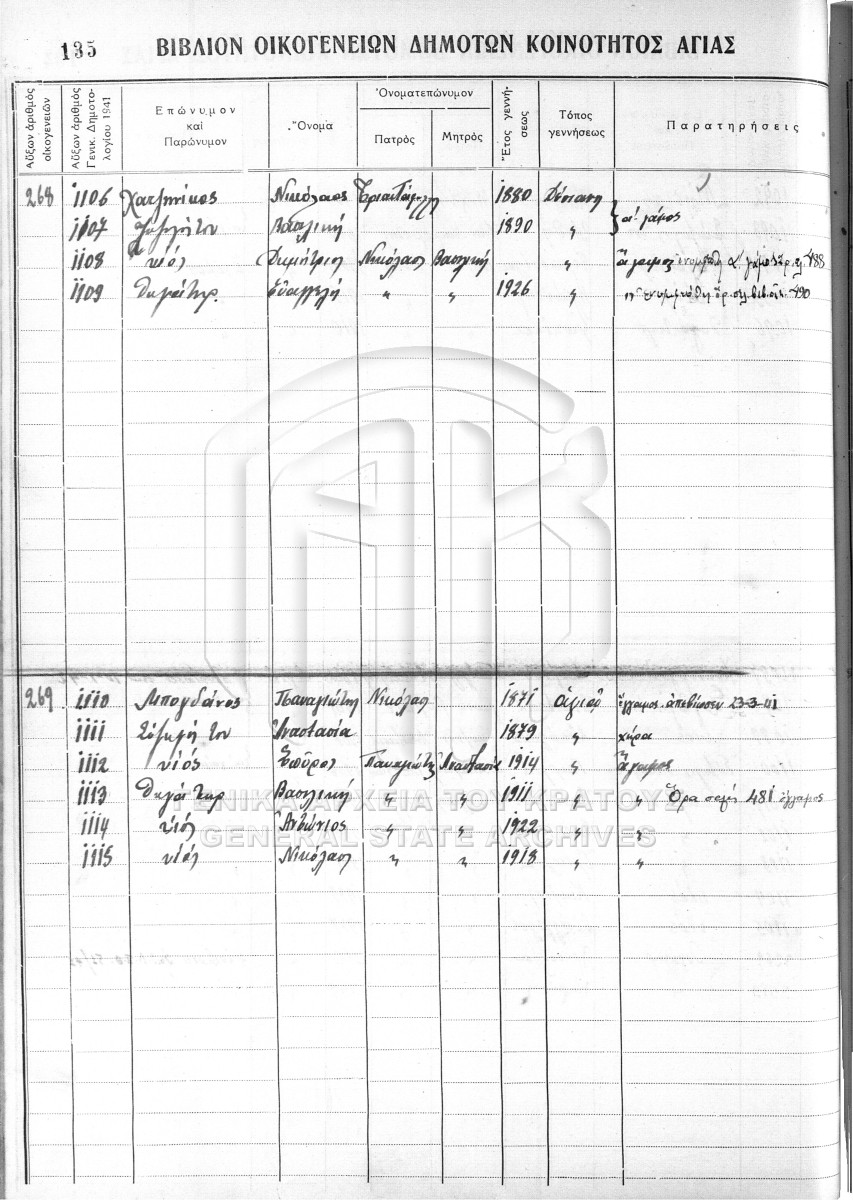 135 ΒΙΒΛΙΟΝ ΟΙΚΟΓΕΝΕΙΩΝ ΔΗΜΟΤΩΝ ΚΟΙΝΟΤΗΤΟΣ ΑΓΙΑΣ
Αὔξων ἀριθμὸς οἰκογενειῶν
Αὔξων ἀριθμὸς Γενικ. Δημοτολογίου 1941
Ἐπώνυμον καὶ Παρώνυμον
Ὄνομα
Ὀνοματεπώνυμον
Πατρὸς Μητρὸς
Ἔτος γεννήσεως
Τόπος γεννήσεως
Παρατηρήσεις
268 1106 Χατζηνίκος Νικόλαος 1880
1107 Σύζυγός του Βασιλική 1890 〃 α' γάμος
1108 υἱός Δημήτριος Νικόλαος Βασιλική 〃 ἄγαμος 488
1109 θυγάτηρ Εὐαγγελή 〃 〃 1926 〃 490
269 1110 Μπογδάνος Παναγιώτης Νικόλαος 1871 ἔγγαμος ἀπεβίωσεν 23-3-41
1111 Σύζυγός του Ἀναστασία 1879 〃 χήρα
1112 υἱός Σπῦρος Παναγιώτης Ἀναστασία 1914 〃 ἄγαμος
1113 θυγάτηρ Βασιλική 〃 〃 1911 〃 〃 Ὅρα σελίς 481 ἔγγαμος
1114 υἱός Ἀντώνιος 〃 〃 1922 〃 〃
1115 υἱός Νικόλαος 〃 〃 1918 〃 〃
ΓΕΝΙΚΑ ΑΡΧΕΙΑ ΤΟΥ ΚΡΑΤΟΥΣ
GENERAL STATE ARCHIVES